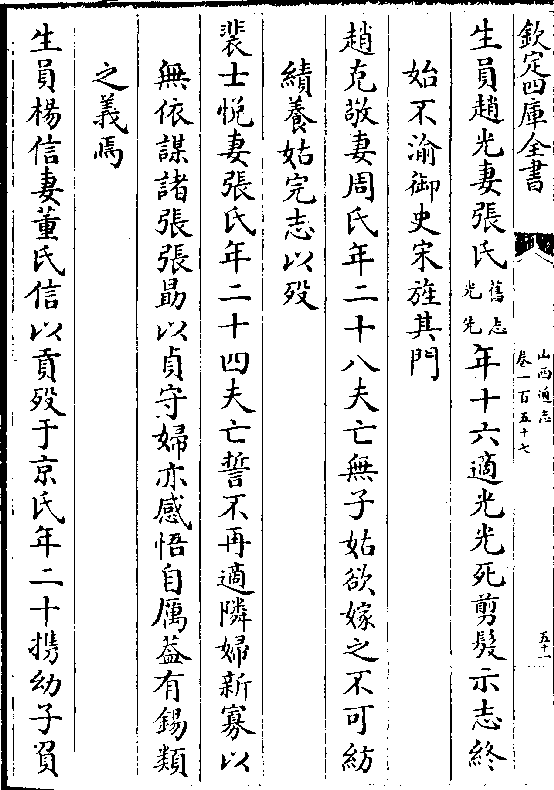 欽定四庫全書
山西通志
卷一百五十七
五十一
生員趙光妻張氏舊志光先年十六適光光死剪髮示志終
始不渝御史宋旌其門
趙克敬妻周氏年二十八夫亡無子姑欲嫁之不可紡
績養姑完志以殁
裴士悅妻張氏年二十四夫亡誓不再適隣婦新寡以
無依謀諸張張勗以貞守婦亦感悟自厲葢有錫類
之義焉
生員楊信妻董氏信以貢殁于京氏年二十携幼子負